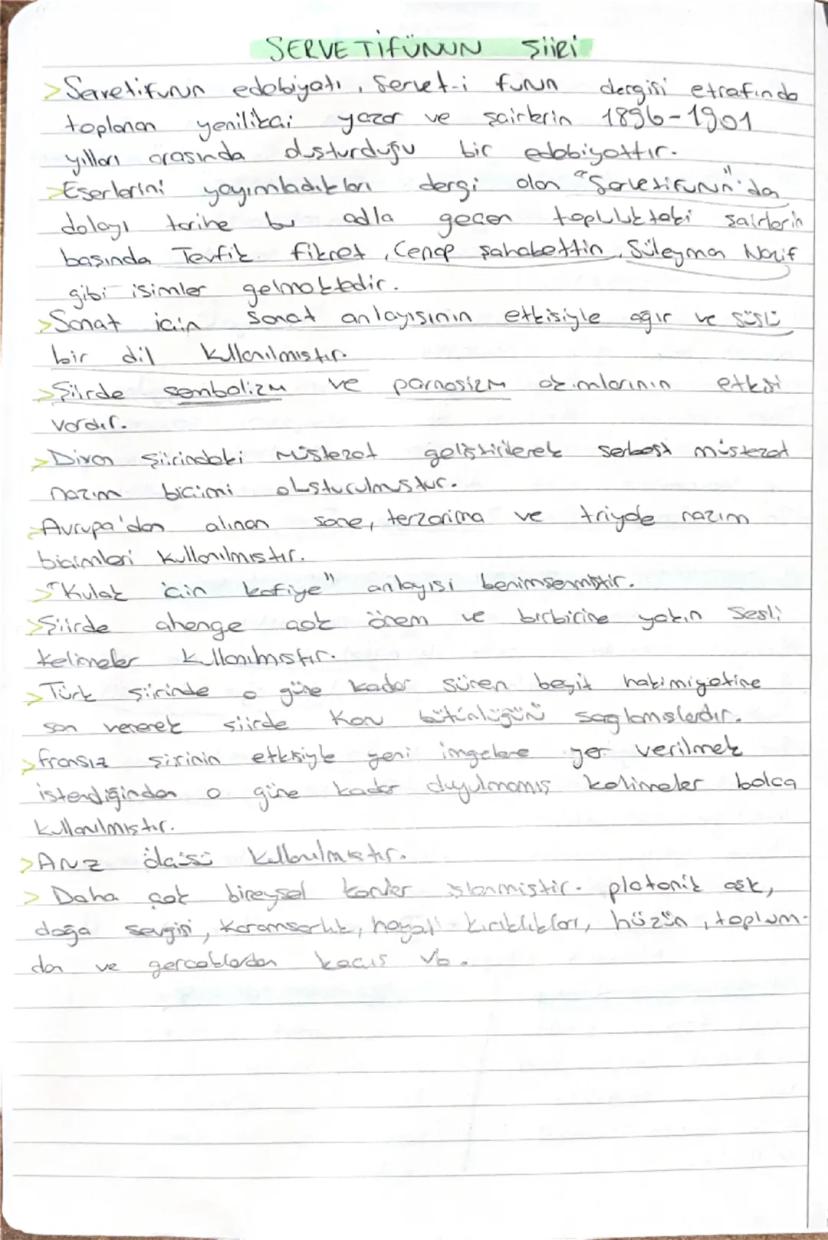 SERVETİFÜNUN ŞİİRİ
> Servetifunun edebiyatı, Servet-i funun dergisi etrafında
toplanan yenilikçi yazar ve şairlerin 1896-1901
yılları arasında oluşturduğu bir edebiyattır.
> Eserlerini yayımladıkları dergi olan "Servetifunun"dan
dolayı tarihe bu adla geçen topluluktaki şairlerin
başında Tevfik Fikret, Cenap Şahabettin, Süleyman Nazif
gibi isimler gelmektedir.
> Sanat için sanat anlayışının etkisiyle ağır ve süslü
bir dil kullanılmıştır.
> Şiirde sembolizm ve parnasizm akımlarının etkisi
vardır.
> Divan şiirindeki müstezat geliştirilerek serbest müstezat
nazım biçimi oluşturulmuştur.
> Avrupa'dan alınan sone, terzarima ve triyole nazım
biçimleri kullanılmıştır.
> "Kulak için kafiye" anlayışı benimsenmiştir.
> Şiirde ahenge çok önem ve birbirine yakın sesli
kelimeler kullanılmıştır.
> Türk şiirinde o güne kadar süren beyit hakimiyetine
son vererek şiirde konu bütünlüğünü sağlamışlardır.
> fransız şiirinin etkisiyle yeni imgelere yer verilmek
istendiğinden o güne kadar duyulmamış kelimeler bolca
kullanılmıştır.
> Aruz ölçüsü kullanılmıştır.
> Daha çok bireysel konular işlenmiştir. platonik aşk,
doğa sevgisi, karamsarlık, hayal kırıklıkları, hüzün, toplum-
dan ve gerçeklerden kaçış vb.